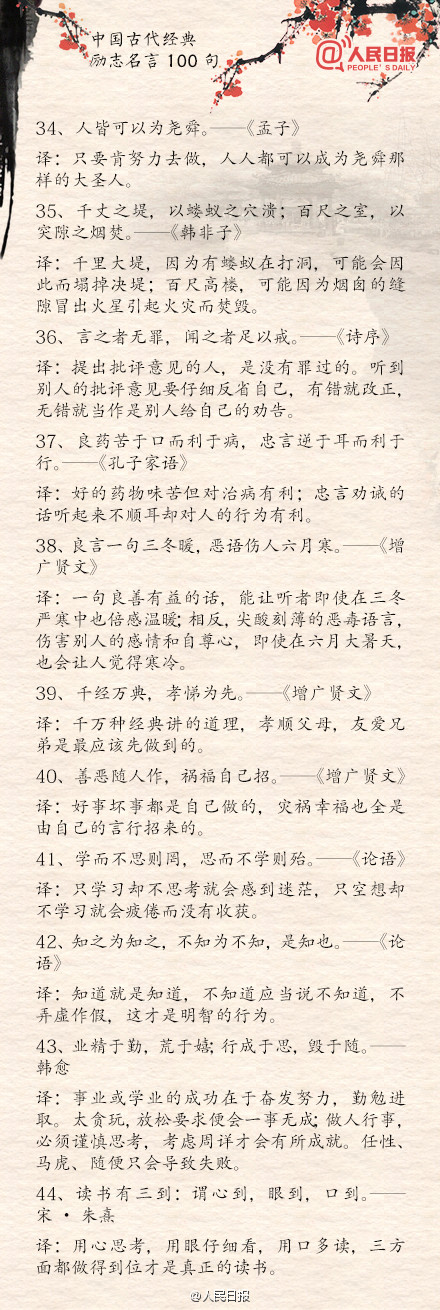 中国古代经典
励志名言 100 句
@人民日报
PEOPLE'S DAILY
34、人皆可以为尧舜。——《孟子》
译：只要肯努力去做，人人都可以成为尧舜那
样的大圣人。
35、千丈之堤，以蝼蚁之穴溃；百尺之室，以
突隙之烟焚。——《韩非子》
译：千里大堤，因为有蝼蚁在打洞，可能会因
此而塌掉决堤；百尺高楼，可能因为烟囱的缝
隙冒出火星引起火灾而焚毁。
36、言之者无罪，闻之者足以戒。——《诗序》
译：提出批评意见的人，是没有罪过的。听到
别人的批评意见要仔细反省自己，有错就改正，
无错就当作是别人给自己的劝告。
37、良药苦于口而利于病，忠言逆于耳而利于
行。——《孔子家语》
译：好的药物味苦但对治病有利；忠言劝诫的
话听起来不顺耳却对人的行为有利。
38、良言一句三冬暖，恶语伤人六月寒。——《增
广贤文》
译：一句良善有益的话，能让听者即使在三冬
严寒中也倍感温暖；相反，尖酸刻薄的恶毒语言，
伤害别人的感情和自尊心，即使在六月大暑天，
也会让人觉得寒冷。
39、千经万典，孝悌为先。——《增广贤文》
译：千万种经典讲的道理，孝顺父母，友爱兄
弟是最应该先做到的。
40、善恶随人作，祸福自己招。——《增广贤文》
译：好事坏事都是自己做的，灾祸幸福也全是
由自己的言行招来的。
41、学而不思则罔，思而不学则殆。——《论语》
译：只学习却不思考就会感到迷茫，只空想却
不学习就会疲倦而没有收获。
42、知之为知之，不知为不知，是知也。——《论
语》
译：知道就是知道，不知道应当说不知道，不
弄虚作假，这才是明智的行为。
43、业精于勤，荒于嬉；行成于思，毁于随。——
韩愈
译：事业或学业的成功在于奋发努力，勤勉进
取。太贪玩，放松要求便会一事无成；做人行事，
必须谨慎思考，考虑周详才会有所成就。任性、
马虎、随便只会导致失败。
44、读书有三到：谓心到，眼到，口到。——
宋·朱熹
译：用心思考，用眼仔细看，用口多读，三方
面都做得到位才是真正的读书。
@人民日报